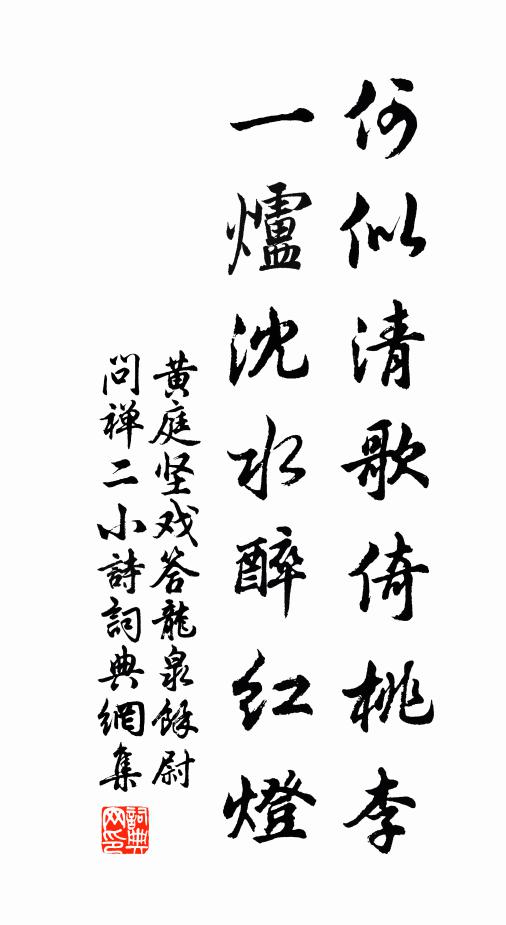 何似清歌倚桃李
一爐沈水醉紅燈
黄庭坚戏答龍泉餘尉
问禅二小詩詞典網集
詞典
网印